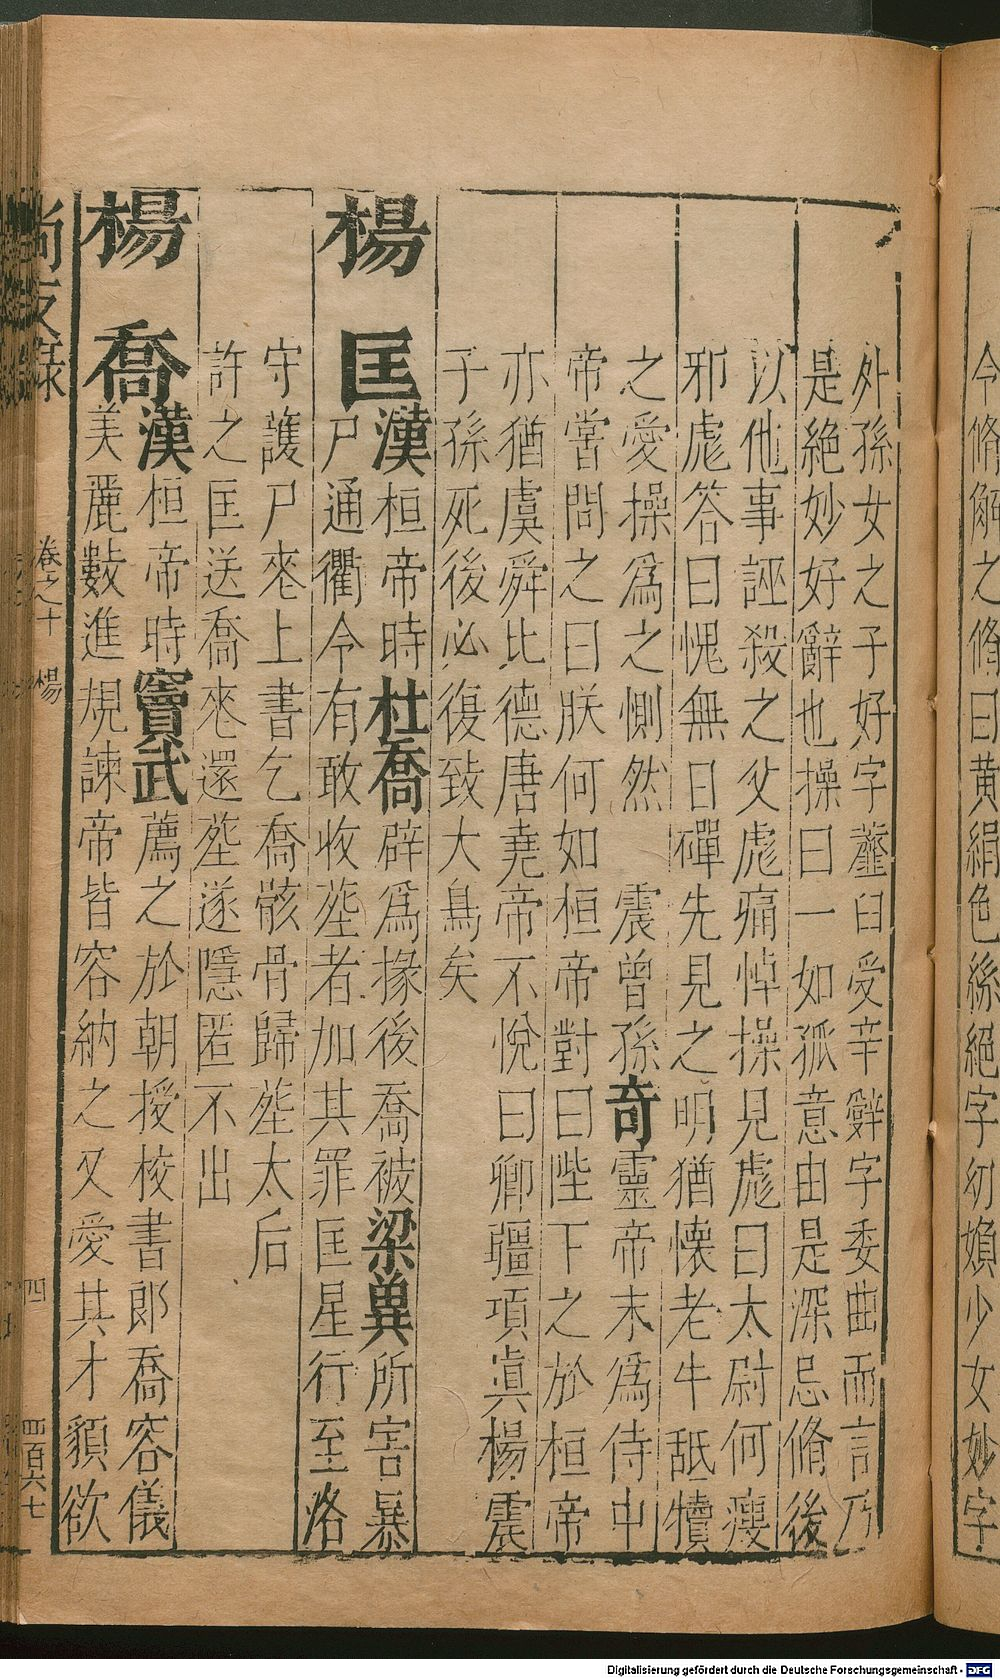 令脩解之脩曰黃絹色絲絕字幼嬪少女妙字
外孫女之子好字虀臼受辛辤字委曲而言乃
是絕妙好辭也操曰一如孤意由是深忌脩後
以他事誣殺之父彪痛悼操見彪曰太尉何瘦
邪彪答曰愧無日磾先見之明猶懷老牛舐犢
之愛操爲之惻然 震曾孫奇靈帝末爲侍中
帝嘗問之曰朕何如桓帝對曰陛下之於桓帝
亦猶虞舜比德唐堯帝不悅曰卿彊項眞楊震
子孫死後必復致大鳥矣
楊匡漢桓帝時杜喬辟爲掾後喬被梁兾所害暴
尸通衢令有敢收塟者加其罪匡星行至洛
守護尸來上書乞喬骸骨歸塟太后
許之匡送喬來還塟遂隱匿不出
楊喬漢桓帝時竇武薦之於朝授校書郎喬容儀
美麗數進規諫帝皆容納之又愛其才貌欲
尚友錄 卷之十 楊 四 四百六七
Digitalisierung gefördert durch die Deutsche Forschungsgemeinschaft - DFG